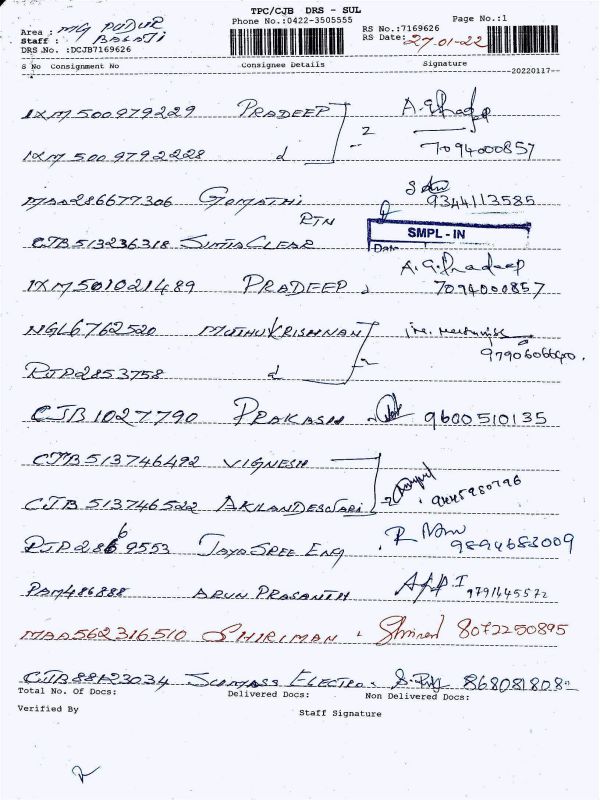 TPC/CJB DRS - SUL
Phone No.:0422-3505555 Page No.:1
Area : MG PUDUR
Staff : BALAJI
DRS No. :DCJB7169626
RS No.:7169626
RS Date: 27-01-22
S No Consignment No Consignee Details Signature
20220117
IXM 500979229 PRADEEP
2
IXM 5009792228 d 7094000857
MAA286677306 GOMATHI 9344113585
RTN
SMPL - IN
Date
CJB 513236318 CLEAR
A.G. Pradeep
IXM 501021489 PRADEEP 7094000857
NGL6762520 MUTHUKRISHNAN
RJP2853758 d 2
CJB 1027790 PRAKASH 9600510135
CJB 513746492 VIGNESH
CJB 513746522 AKILANDESWARI 2
6
RJP2869553 JAYA SREE ENG 9894683009
PAM486888 ARUN PRASANTH 9791645572
MAA562316510 SHRIMAN 8072250895
CJB88123034 ELECTRO
Total No. Of Docs: Delivered Docs: Non Delivered Docs:
Verified By Staff Signature